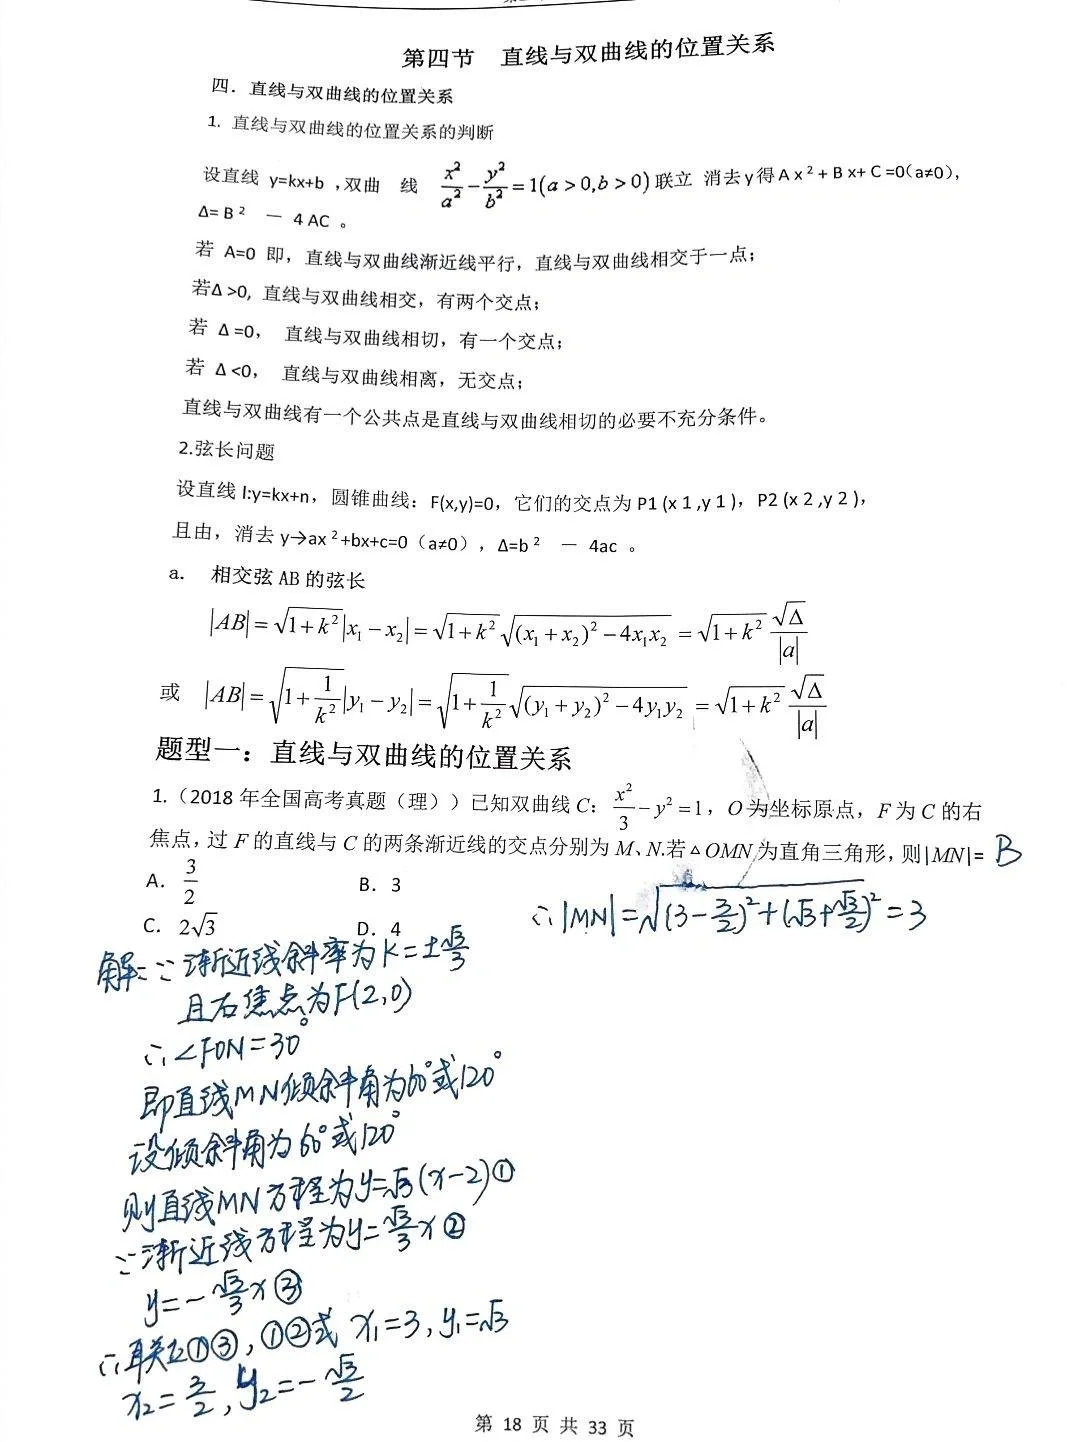 第四节 直线与双曲线的位置关系
四．直线与双曲线的位置关系
1. 直线与双曲线的位置关系的判断
设直线 y=kx+b ,双曲 线 x²/a² - y²/b² = 1(a > 0,b > 0) 联立 消去y得A x ² + B x+ C =0(a≠0),
Δ= B ² － 4 AC 。
若 A=0 即，直线与双曲线渐近线平行，直线与双曲线相交于一点；
若Δ >0, 直线与双曲线相交，有两个交点；
若 Δ =0， 直线与双曲线相切，有一个交点；
若 Δ <0， 直线与双曲线相离，无交点；
直线与双曲线有一个公共点是直线与双曲线相切的必要不充分条件。
2.弦长问题
设直线 l:y=kx+n，圆锥曲线：F(x,y)=0，它们的交点为 P1 (x 1 ,y 1 )，P2 (x 2 ,y 2 )，
且由，消去 y→ax ²+bx+c=0（a≠0），Δ=b ² － 4ac 。
a. 相交弦 AB 的弦长
|AB| = √(1+k²)|x₁ - x₂| = √(1+k²) √((x₁ + x₂)² - 4x₁x₂) = √(1+k²) √Δ/|a|
或 |AB| = √(1+1/k²)|y₁ - y₂| = √(1+1/k²) √((y₁ + y₂)² - 4y₁y₂) = √(1+k²) √Δ/|a|
题型一：直线与双曲线的位置关系
1.（2018 年全国高考真题（理））已知双曲线 C：x²/3 - y² = 1，O 为坐标原点，F 为 C 的右
焦点，过 F 的直线与 C 的两条渐近线的交点分别为 M、N.若△OMN 为直角三角形，则|MN|= B
A．3/2 B．3
C．2√3 D．4
∴|MN|=√((3-3/2)²+(√3+√3/2)²)=3
解：∵渐近线斜率为K=±√3/3
且右焦点为F(2,0)
∴∠FON=30°
即直线MN倾斜角为60°或120°
设倾斜角为60°或120°
则直线MN方程为y=√3(x-2)①
∵渐近线方程为y=√3/3x②
y=-√3/3x③
∴联立①③,①②式 x₁=3,y₁=√3
x₂=3/2,y₂=-√3/2
第 18 页 共 33 页